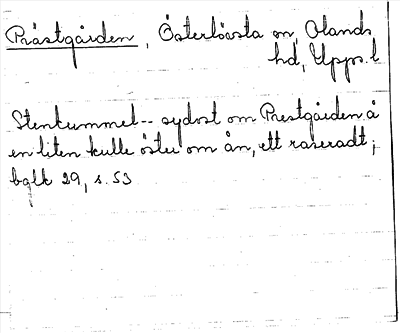 Prästgården, Österlövsta sn, Olands
hd, Upps. l
Stenkummel-- sydost om Prestgården å
en liten kulle öster om ån, ett raseradt;
bglk 29, s. 53